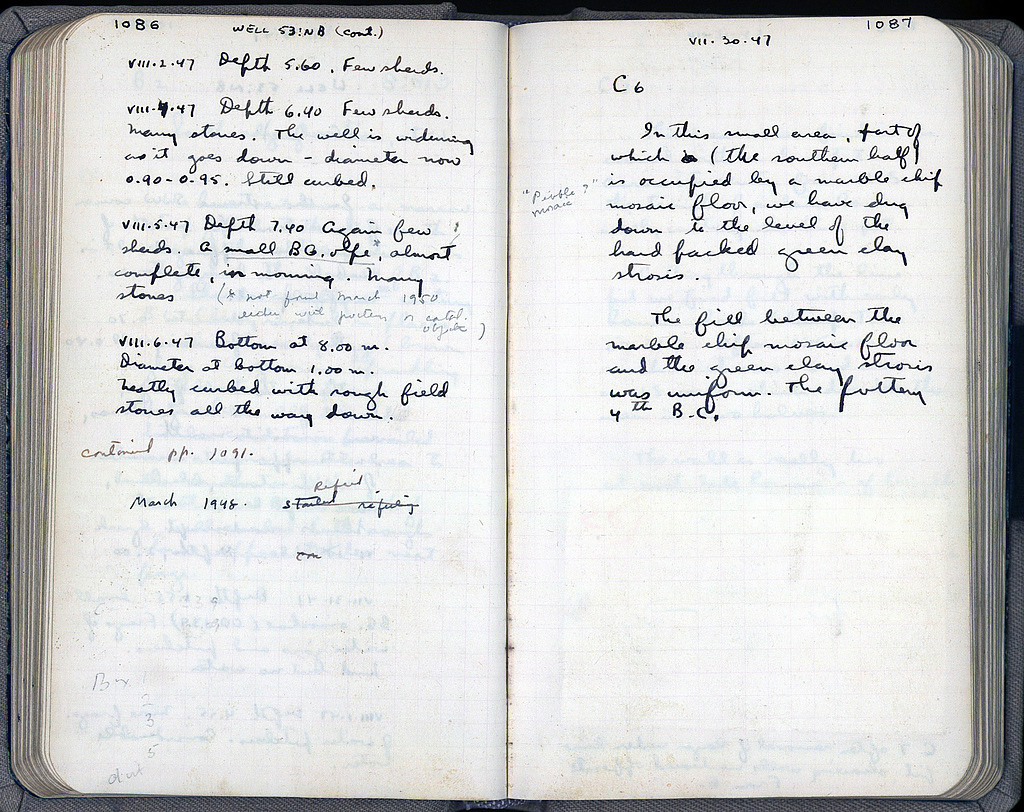 1086
WELL 53:NB (cont.)
VIII.2.47 Depth 5.60. Few sherds.
VIII.4.47 Depth 6.40 Few sherds.
Many stones. The well is widening
as it goes down - diameter now
0.90-0.95. Still curbed.
VIII.5.47 Depth 7.40 Again few
sherds. A small BG. olpe*, almost
complete, in morning. Many
stones (* not found March 1950
either with pottery or catal.
objects)
VIII.6.47 Bottom at 8.00 m.
Diameter at bottom 1.00 m.
Neatly curbed with rough field
stones all the way down.
continued pp. 1091.
Refill
March 1948. started refilling
Box 1
2
3
5
1087
VII.30.47
C 6
In this small area, part of
which (the southern half)
is occupied by a marble chip
"Pebble?"
mosaic
mosaic floor, we have dug
down to the level of the
hard packed green clay
strosis.
The fill between the
marble chip mosaic floor
and the green clay strosis
was uniform. The pottery
4th B.C.